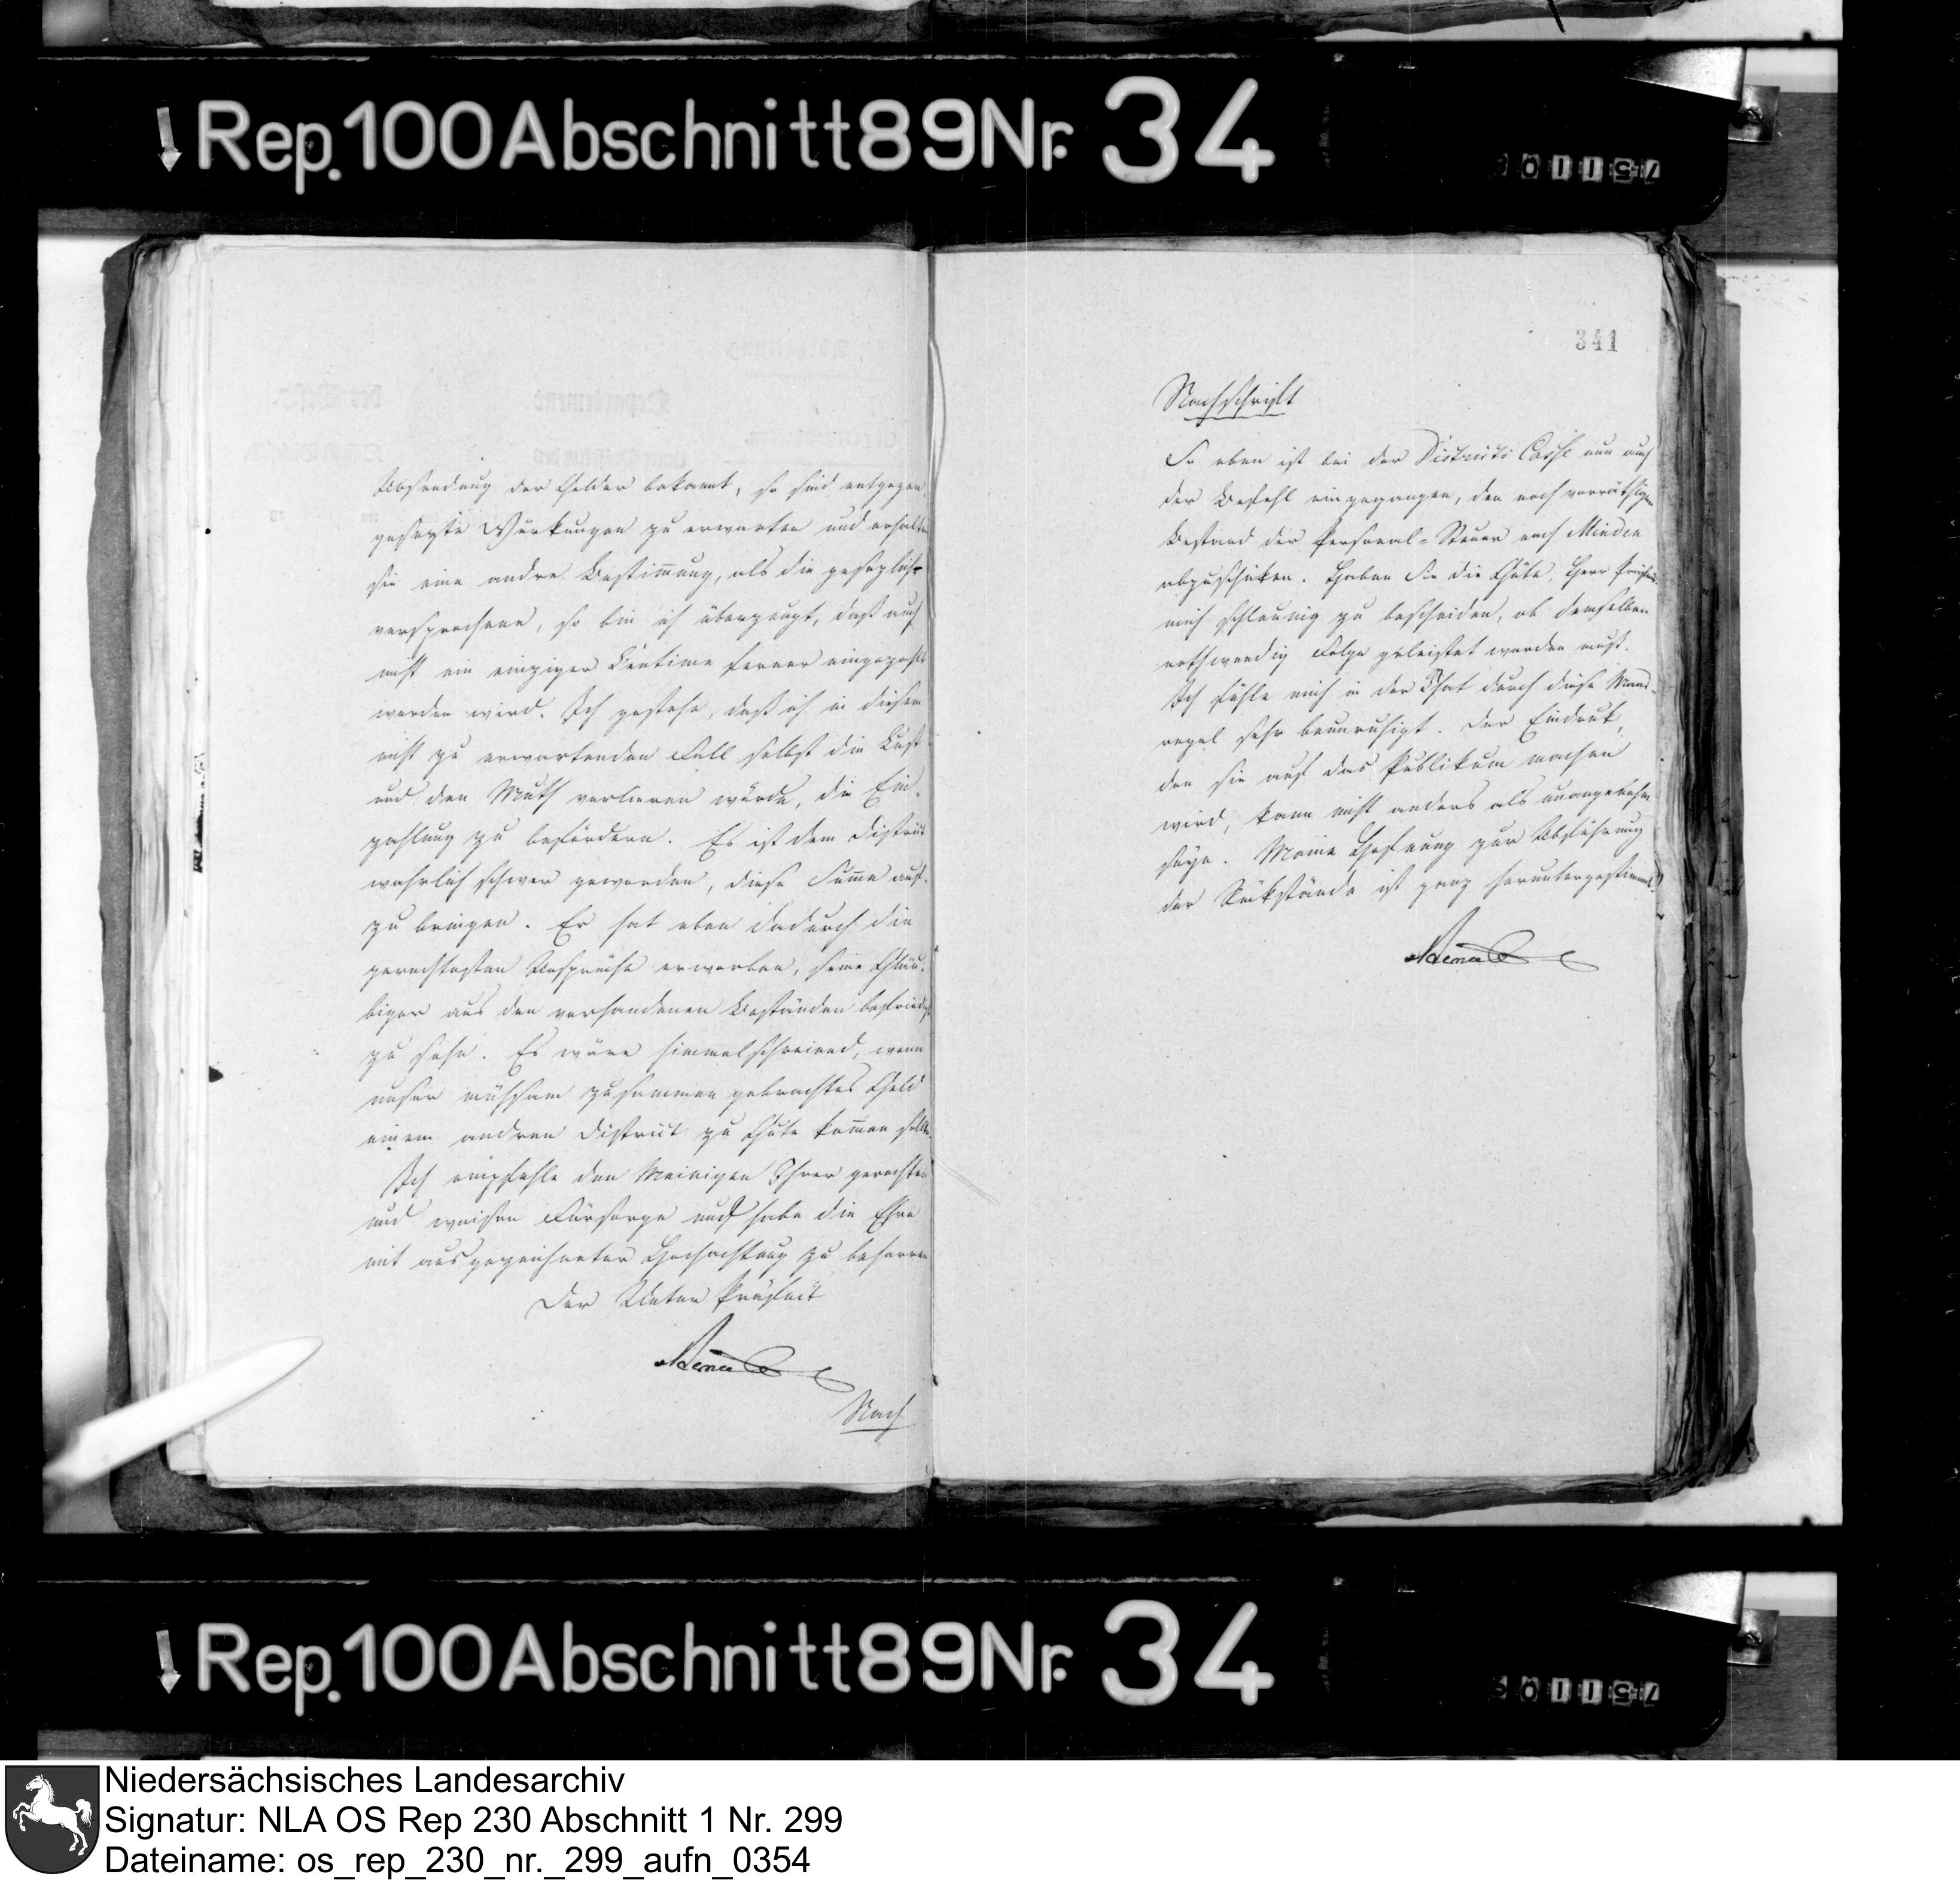 Rep. 100 Abschnitt 89 Nr. 34
Absendung der Gelder bekannt, so sind entgegen
gesezte Würkungen zu erwarten und erhalten
sie eine andre Bestim̄ung, als die gesezlich
versprochene, so bin ich überzeugt, daß auch
nicht ein einziger Centime ferner eingezahlt
werden wird. Ich gestehe, daß ich in diesem
nicht zu erwartenden Fall selbst die Lust
und den Muth verlieren würde, die Ein-
zahlung zu befördern. Es ist dem District
wahrlich schwer geworden, diese Sum̄e auf-
zu bringen. Er hat eben dadurch die
gerechtesten Ansprüche erworben, seine Gläu-
biger aus den vorhandenen Beständen befriedigt
zu sehn. Es wäre himmelschreiend, wenn
unser mühsam zusammen gebrachtes Geld
einem andren District zu Gute kom̄en sollte.
Ich empfehle den Meinigen Ihrer gerechten
und weisen Fürsorge und habe die Ehre
mit ausgezeichneter Hochachtung zu beharren
Der Unter Präfect
Nach
341
Nachschrift
So eben ist bei der Districts Casse nun auch
der Befehl eingegangen, den noch vorräthigen
Bestand der Personal-Steuer nach Minden
abzuschicken. Haben Sie die Güte, Herr Präfect,
mich schleunig zu bescheiden, ob demselben
nothwendig Folge geleistet werden muß.
Ich fühle mich in der That durch diese Maas-
regel sehr beunruhigt. Der Eindruk,
den sie auf das Publikum machen
wird, kann nicht anders als unangenehm
seyn. Meine Hofnung zur Abführung
der Rükstände ist ganz heruntergestimmt.
Rep. 100 Abschnitt 89 Nr. 34
Niedersächsisches Landesarchiv
Signatur: NLA OS Rep 230 Abschnitt 1 Nr. 299
Dateiname: os_rep_230_nr._299_aufn_0354